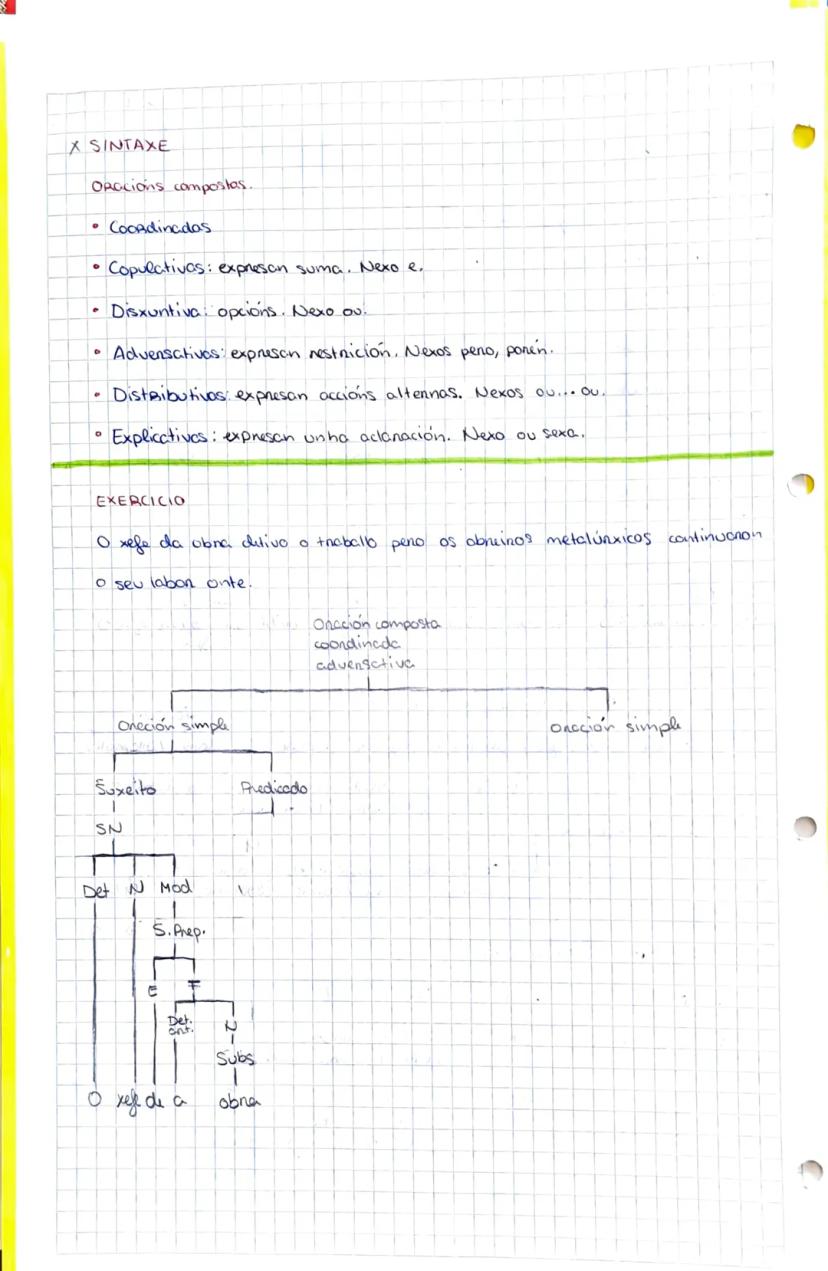 x SINTAXE
Oracións compostas.
• Coordinadas
• Copulativas: expresan suma. Nexo e.
• Disxuntiva: opcións. Nexo ou.
• Adversativas: expresan restrición. Nexos pero, porén.
• Distributivas: expresan accións alternas. Nexos ou... ou.
• Explicativas: expresan unha aclaración. Nexo ou sexa.
EXERCICIO
O xefe da obra detivo o traballo pero os obreiros metalúrxicos continuaron
o seu labor onte.
Oración composta
coordinada
adversativa
Oración simple Oración simple
Suxeito Predicado
SN
Det N Mod
S. Prep.
E T
Det. N
art.
Subs
O xefe de a obra